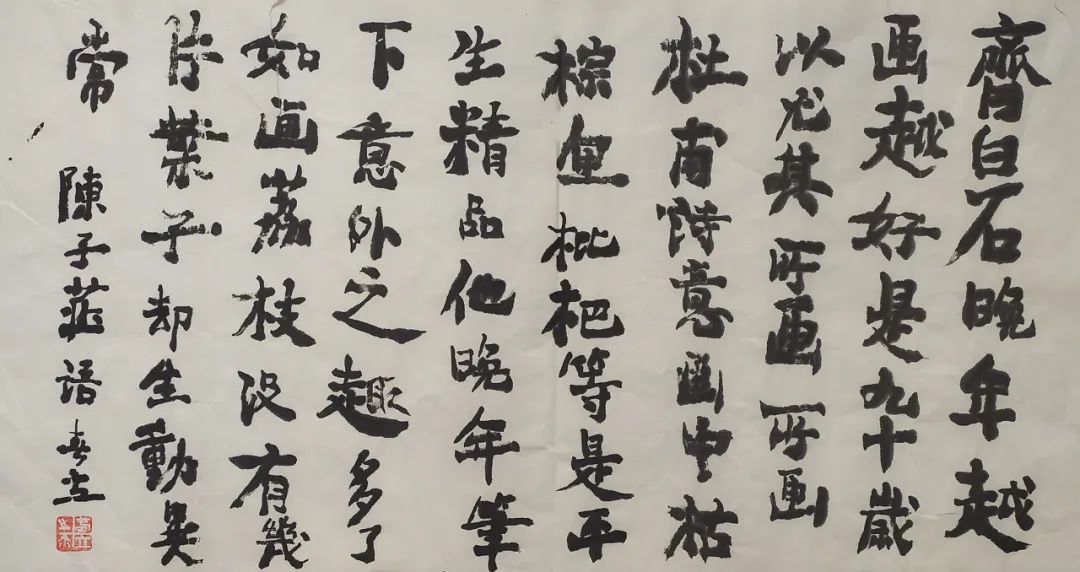 齊白石晚年越
画越好是九十歲
以尤其所画所画
杜甫詩意画中枯
棕枇杷等是平
生精品他晚年筆
下意外之趣多了
如画荔枝没有幾
片葉子却生動異
常 陳子莊語